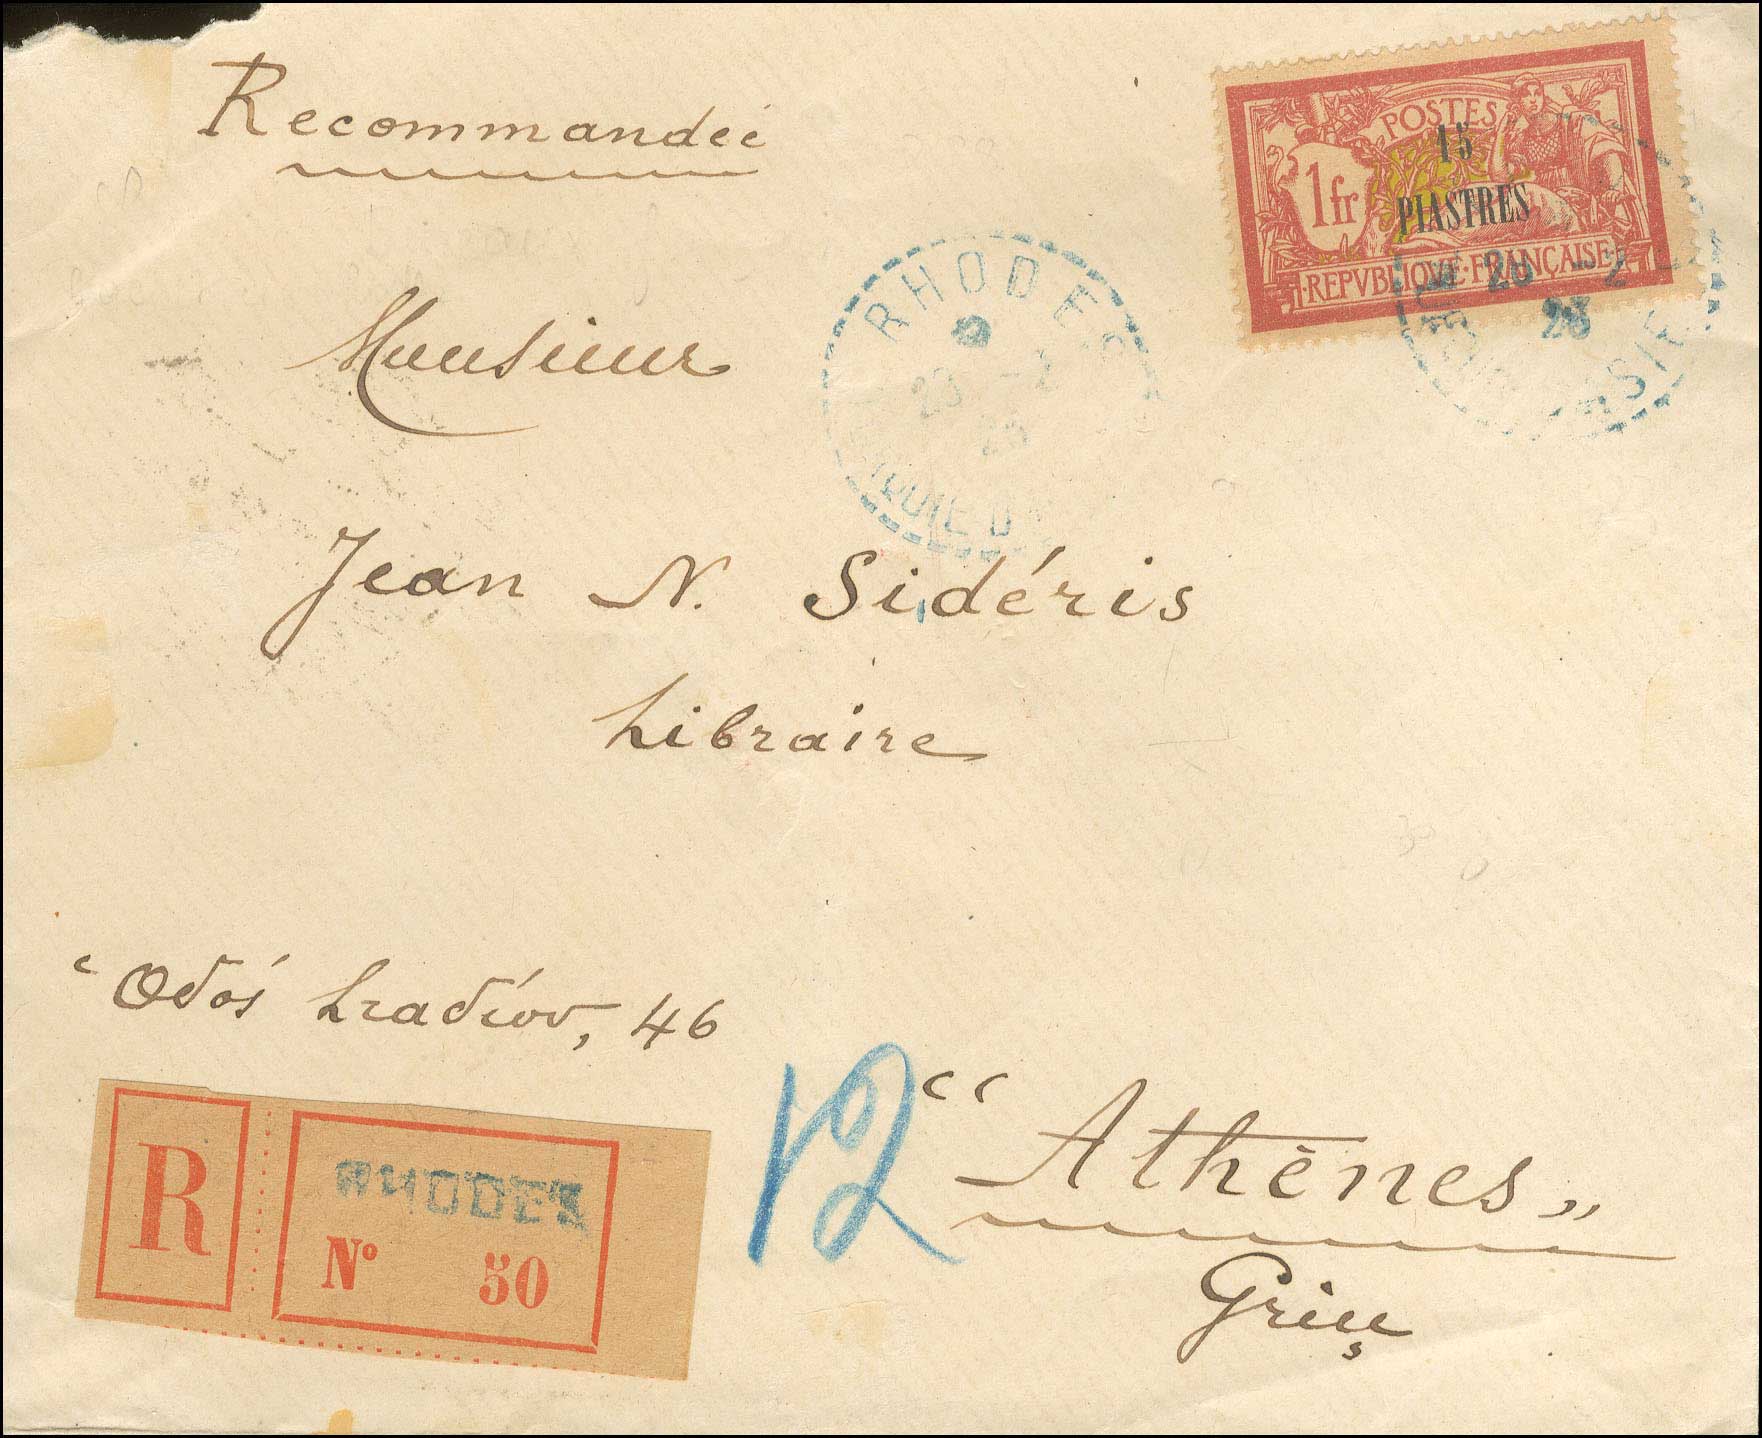 Recommandée
POSTES
1 fr
15
PIASTRES
REPVBLIQVE·FRANÇAISE
RHODES
23 -2
23
Monsieur
Jean N. Sidéris
Libraire
Ὁδός Σταδίου, 46
R
RHODES
Nº 50
12
"Athènes"
Grèce